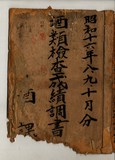 昭和十六年八九十月分
酒類檢査成績調書
酉